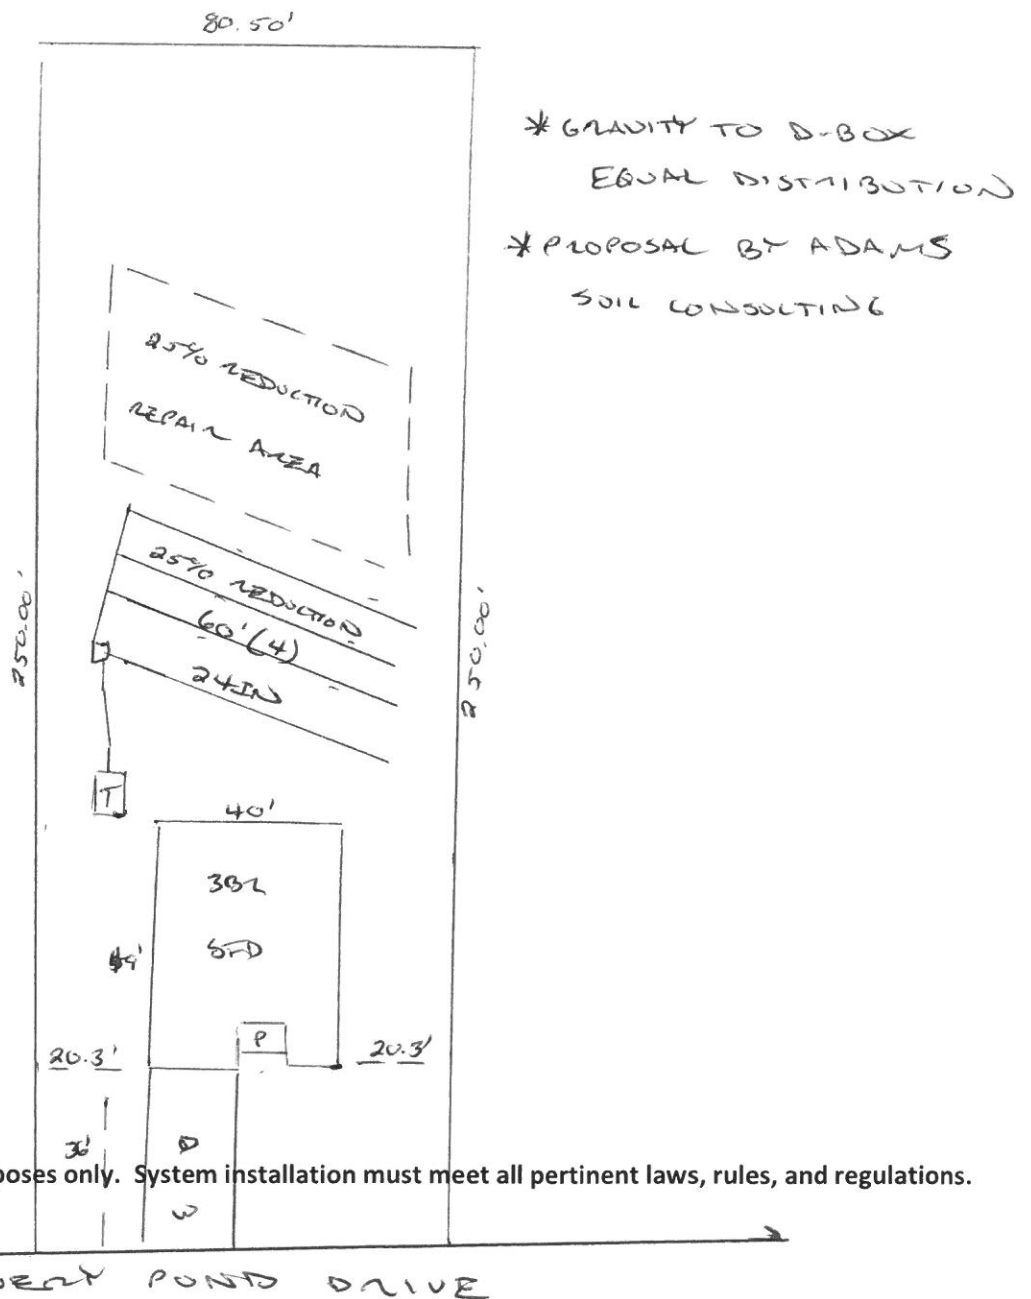 80.50'
* GRAVITY TO D-BOX
EQUAL DISTRIBUTION
* PROPOSAL BY ADAMS
SOIL CONSULTING
25% REDUCTION
REPAIR AREA
250.00'
250.00'
25% REDUCTION
60' (4)
24IN
T
40'
3BR
SFD
P
20.3'
20.3'
36'
D
poses only. System installation must meet all pertinent laws, rules, and regulations.
W
POND DRIVE